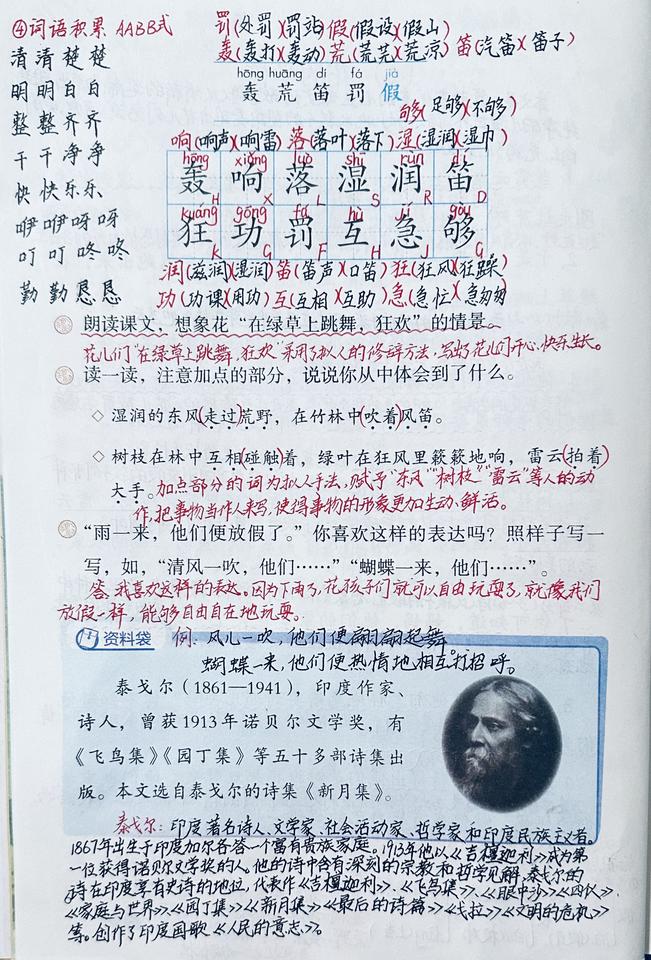 ④词语积累 AABB式
清清楚楚
明明白白
整整齐齐
干干净净
快快乐乐
咿咿呀呀
叮叮咚咚
勤勤恳恳
罚(处罚)(罚站)假(假设)(假山)
轰(轰打)(轰动)荒(荒芜)(荒凉)笛(汽笛)(笛子)
hōng huāng dí fá jià
轰 荒 笛 罚 假
够(足够)(不够)
响(响声)(响雷)落(落叶)(落下)湿(湿润)(湿巾)
hōng xiǎng luò shī rùn dí
轰 响 落 湿 润 笛
H X L S R D
kuáng gōng fá hù jí gòu
狂 功 罚 互 急 够
K G F H J G
润(滋润)(湿润)笛(笛声)(口笛)狂(狂风)(狂躁)
功(功课)(用功)互(互相)(互助)急(急忙)(急匆匆)
朗读课文，想象花“在绿草上跳舞，狂欢”的情景。
花儿们“在绿草上跳舞，狂欢”采用了拟人的修辞方法，写出了花儿们开心、快乐生长。
读一读，注意加点的部分，说说你从中体会到了什么。
◇ 湿润的东风(走过)荒野，在竹林中(吹着)风笛。
◇ 树枝在林中互相(碰触)着，绿叶在狂风里簌簌地响，雷云(拍着)
大手。加点部分的词为拟人手法，赋予“东风”“树枝”“雷云”等人的动
作，把事物当作人来写，使得事物的形象更加生动、鲜活。
“雨一来，他们便放假了。”你喜欢这样的表达吗？照样子写一
写，如，“清风一吹，他们……”“蝴蝶一来，他们……”。
答：我喜欢这样的表达。因为下雨了，花孩子们就可以自由玩耍了，就像我们
放假一样，能够自由自在地玩耍。
资料袋 例：风儿一吹，他们便翩翩起舞。
蝴蝶一来，他们便热情地相互打招呼。
泰戈尔（1861—1941），印度作家、
诗人，曾获1913年诺贝尔文学奖，有
《飞鸟集》《园丁集》等五十多部诗集出
版。本文选自泰戈尔的诗集《新月集》。
泰戈尔：印度著名诗人、文学家、社会活动家、哲学家和印度民族主义者。
1867年出生于印度加尔各答一个富有贵族家庭。1913年他以《吉檀迦利》成为第
一位获得诺贝尔文学奖的人。他的诗中含有深刻的宗教和哲学见解，泰戈尔的
诗在印度享有史诗的地位，代表作《吉檀迦利》、《飞鸟集》、《眼中沙》《四人》、
《家庭与世界》《园丁集》《新月集》《最后的诗篇》《戈拉》《文明的危机》
等。创作了印度国歌《人民的意志》。